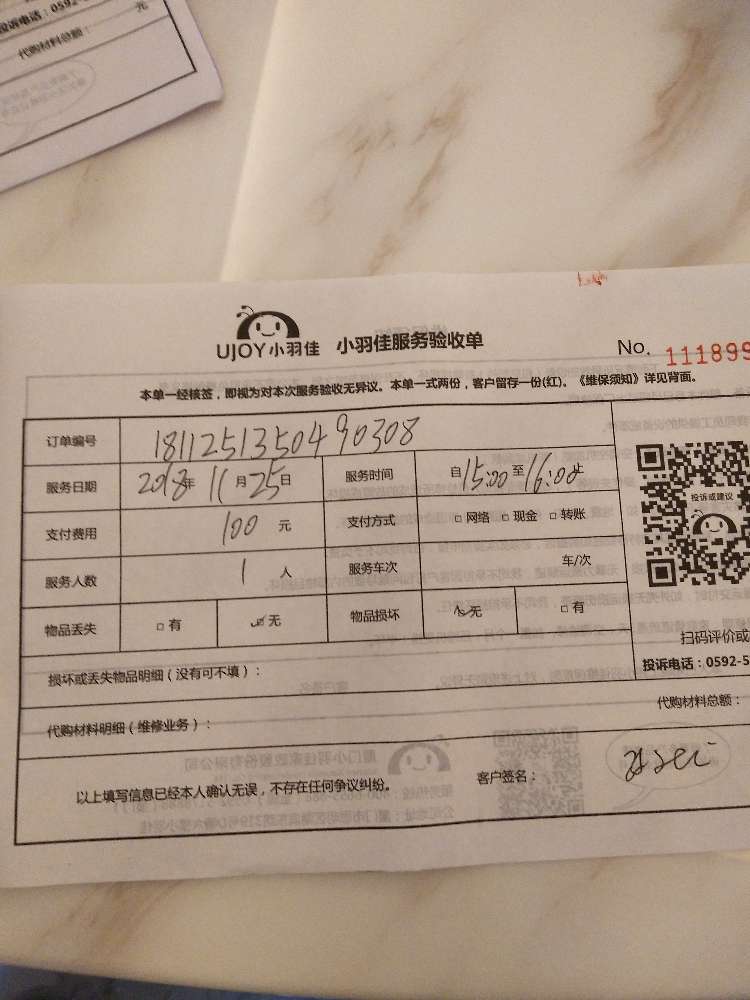 投诉电话：0592-5
元
代购材料总额：
UJOY小羽佳 小羽佳服务验收单 No. 111899
本单一经核签，即视为对本次服务验收无异议。本单一式两份，客户留存一份(红)。《维保须知》详见背面。
订单编号 181125135049 0308
服务日期 2018年 11月25日 服务时间 自15:00至16:00止
投诉或建议
支付费用 100 元 支付方式 □ 网络 □ 现金 □ 转账
服务人数 1 人 服务车次 车/次
物品丢失 □ 有 ☑ 无 物品损坏 ☑ 无 □ 有
扫码评价或
损坏或丢失物品明细（没有可不填）：
投诉电话：0592-5
代购材料明细（维修业务）： 代购材料总额：
以上填写信息已经本人确认无误，不存在任何争议纠纷。 客户签名：